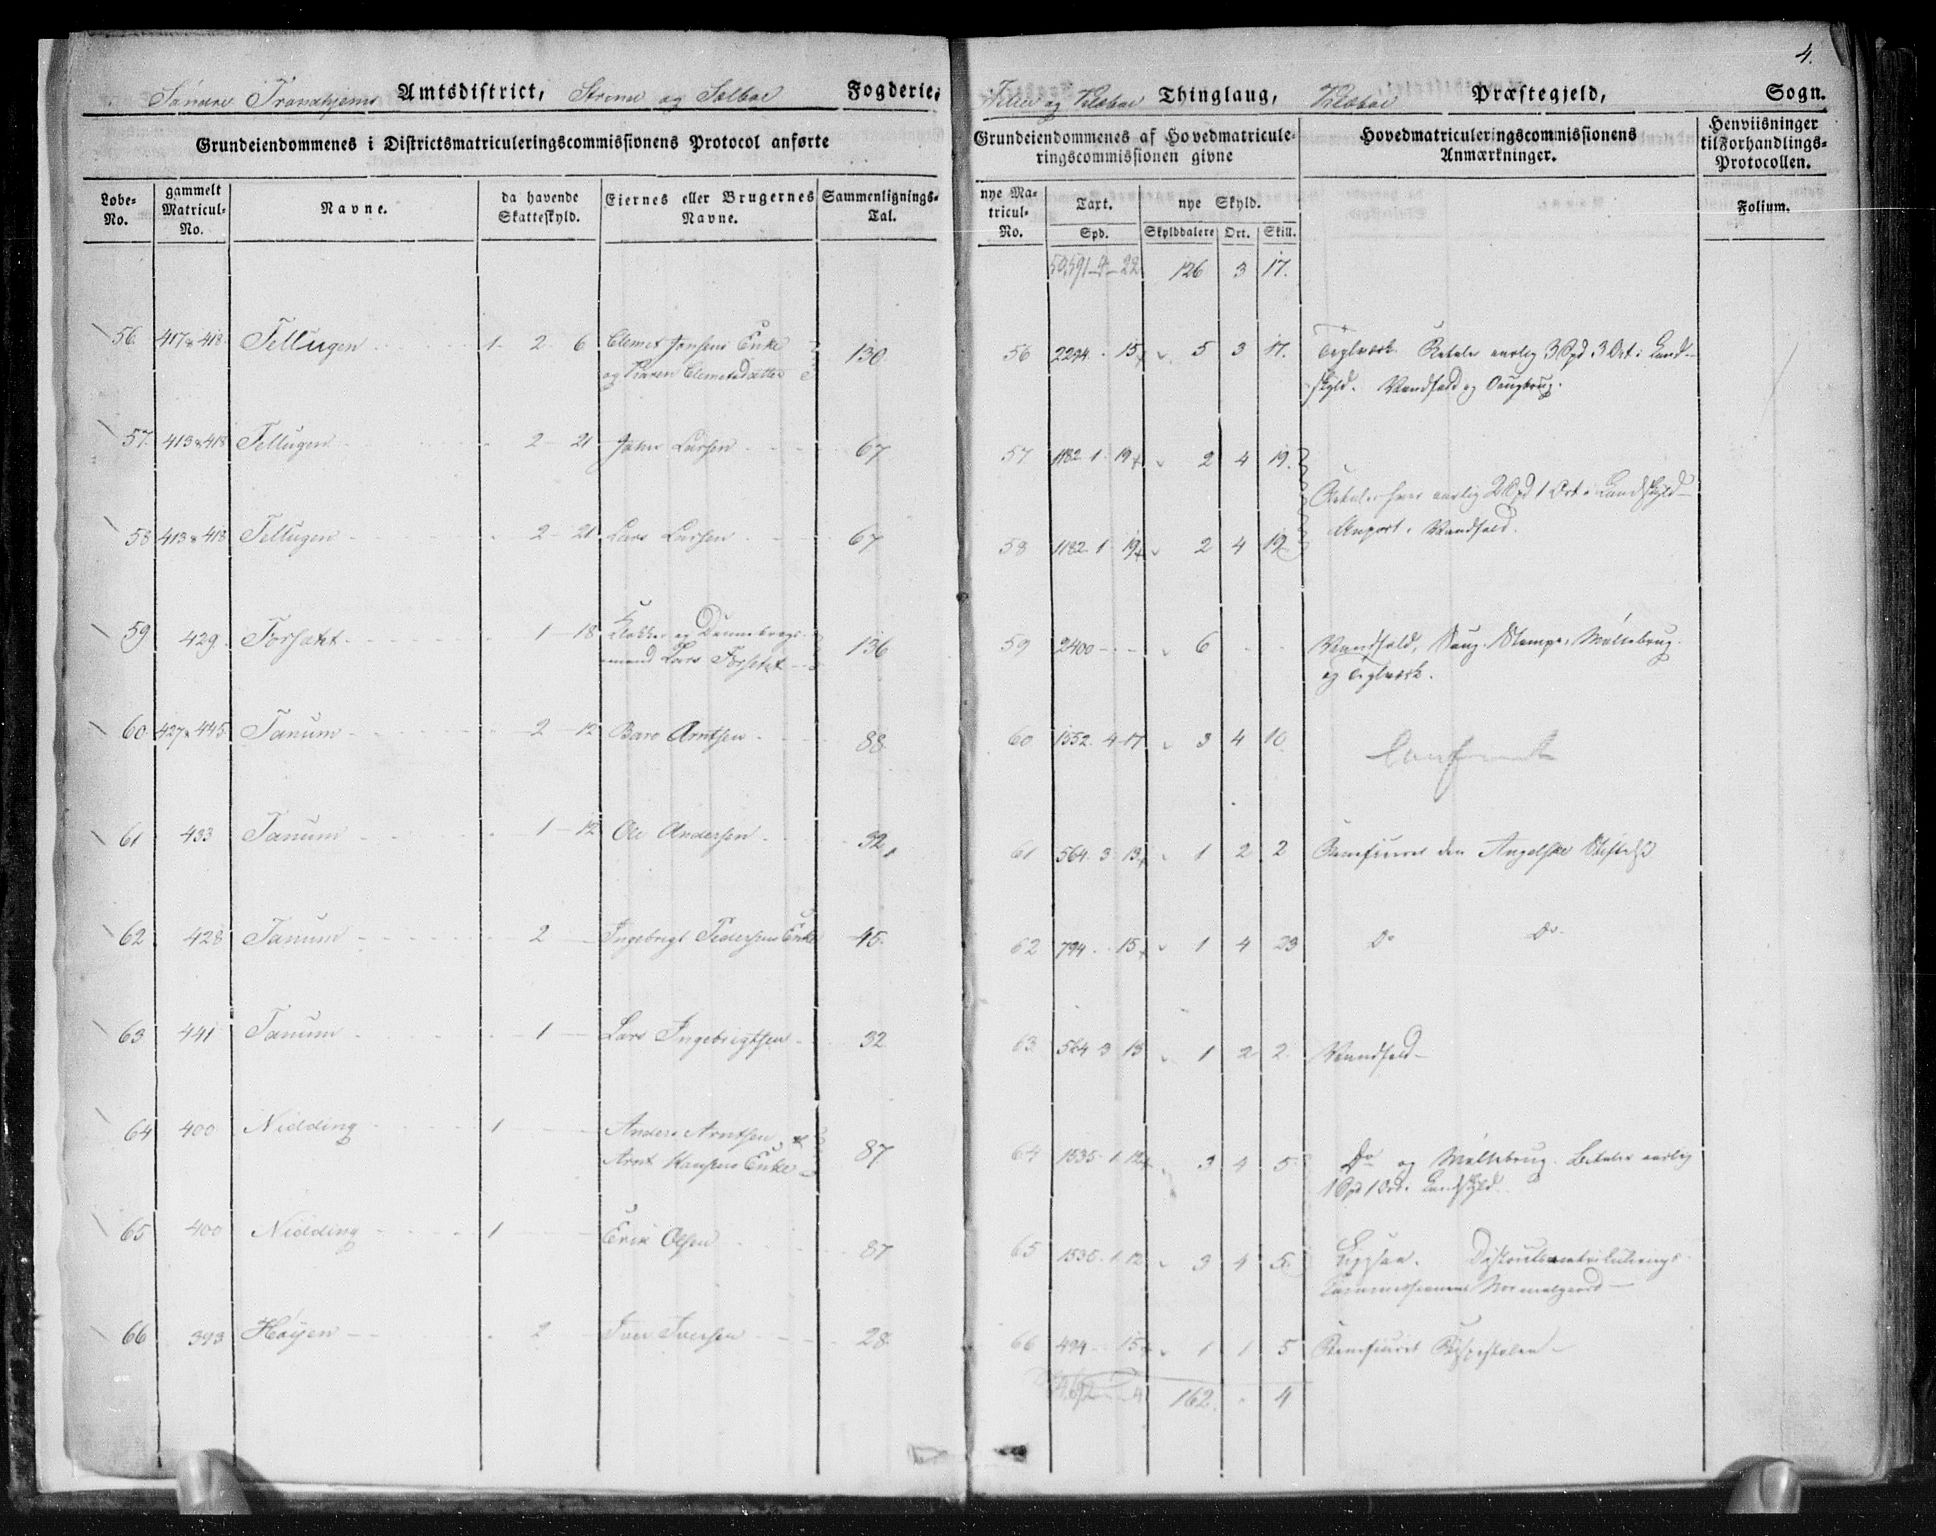 4.
Søndre Trondhjems Amtsdistrict, Strinde og Selboe Fogderie, Tiller og Klæboe Thinglaug, Klæboe Præstegjeld, Sogn.
Grundeiendommenes i Districtsmatriculeringscommissionens Protocol anførte
Grundeiendommenes af Hovedmatriculeringscommissionen givne
Hovedmatriculeringscommissionens Anmærkninger.
Henviisninger til Forhandlings-Protocollen.
Løbe-No. gammelt Matricul-No. Navne. da havende Skatteskyld. Eiernes eller Brugernes Navne. Sammenlignings-Tal.
nye Matricul-No. Taxt. nye Skyld. Folium.
Spd. Skylddalere Ort. Skill.
126 3 17.
56. 417 & 418 Tellugen 1 - 2 - 6 Clemet Jonsens Enke og Karen Clemetsdatter 130 56 2294 - 15 5 3 17. Teglværk. Betaler aarlig 3 Spd 3 Ort i Landskyld. Vandfald og Saugbrug.
57. 413 & 418 Tellugen 2 - 21 John Larsen 67 57 1182 1 19 2 4 19. Betaler hver aarlig 2 Spd 1 Ort i Landskyld
58 413 & 418 Tellugen 2 - 21 Lars Larsen 67 58 1182 1 19 2 4 19 Vandfald.
59 429. Forsætt 1 - 18 Klokker og Dannebrogsmand Lars Forsætt 136 59 2400 6 Vandfald, Saug, Stampe, Møllebrug og Teglværk.
60 427 & 445 Tanum 2 - 12 Baro Arntsen 88 60 1552. 4 17 3 4 10
61 433 Tanum 1 - 12 Ole Andersen 32 61 564 3 13 1 2 2 Beneficeret den Angelske Stiftelse
62 428 Tanum 2 Ingebrigt Pedersens Enke 45. 62 794 15 1 4 23 Do Do
63 441 Tanum 1 Lars Ingebrigtsen 32 63 564 3 13 1 2 2. Vandfald
64 400 Nidding 1 Anders Arntsen & Arnt Hansens Enke 87 64 1535 1 12 3 4 5 Do og Møllebrug. Betaler aarlig 1 Spd 1 Ort i Landskyld.
65 400 Nidding 1 Erik Olsen 87 65 1535 1 12 3 4 5 Districtsmatriculerings Commissionens Normalgaard
66 393 Høyen 2 Iver Iversen 28 66 494 15 1 1 5 Beneficeret Bispestolen
162 4